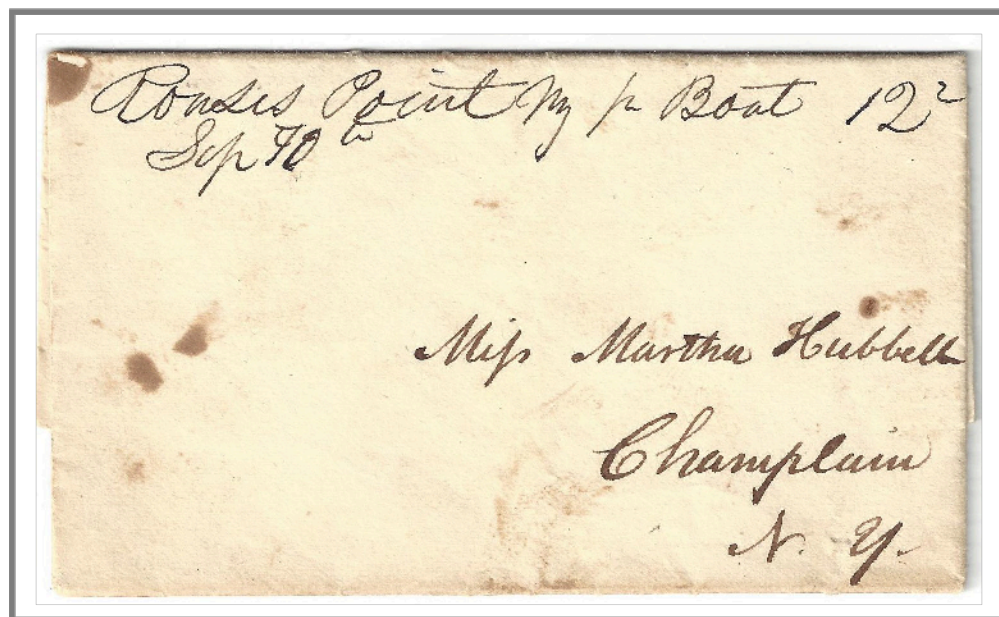 Rouses Point Ny pr Boat 12 2
Sep 10th
Miss Martha Hubbell
Champlain
N. Y.